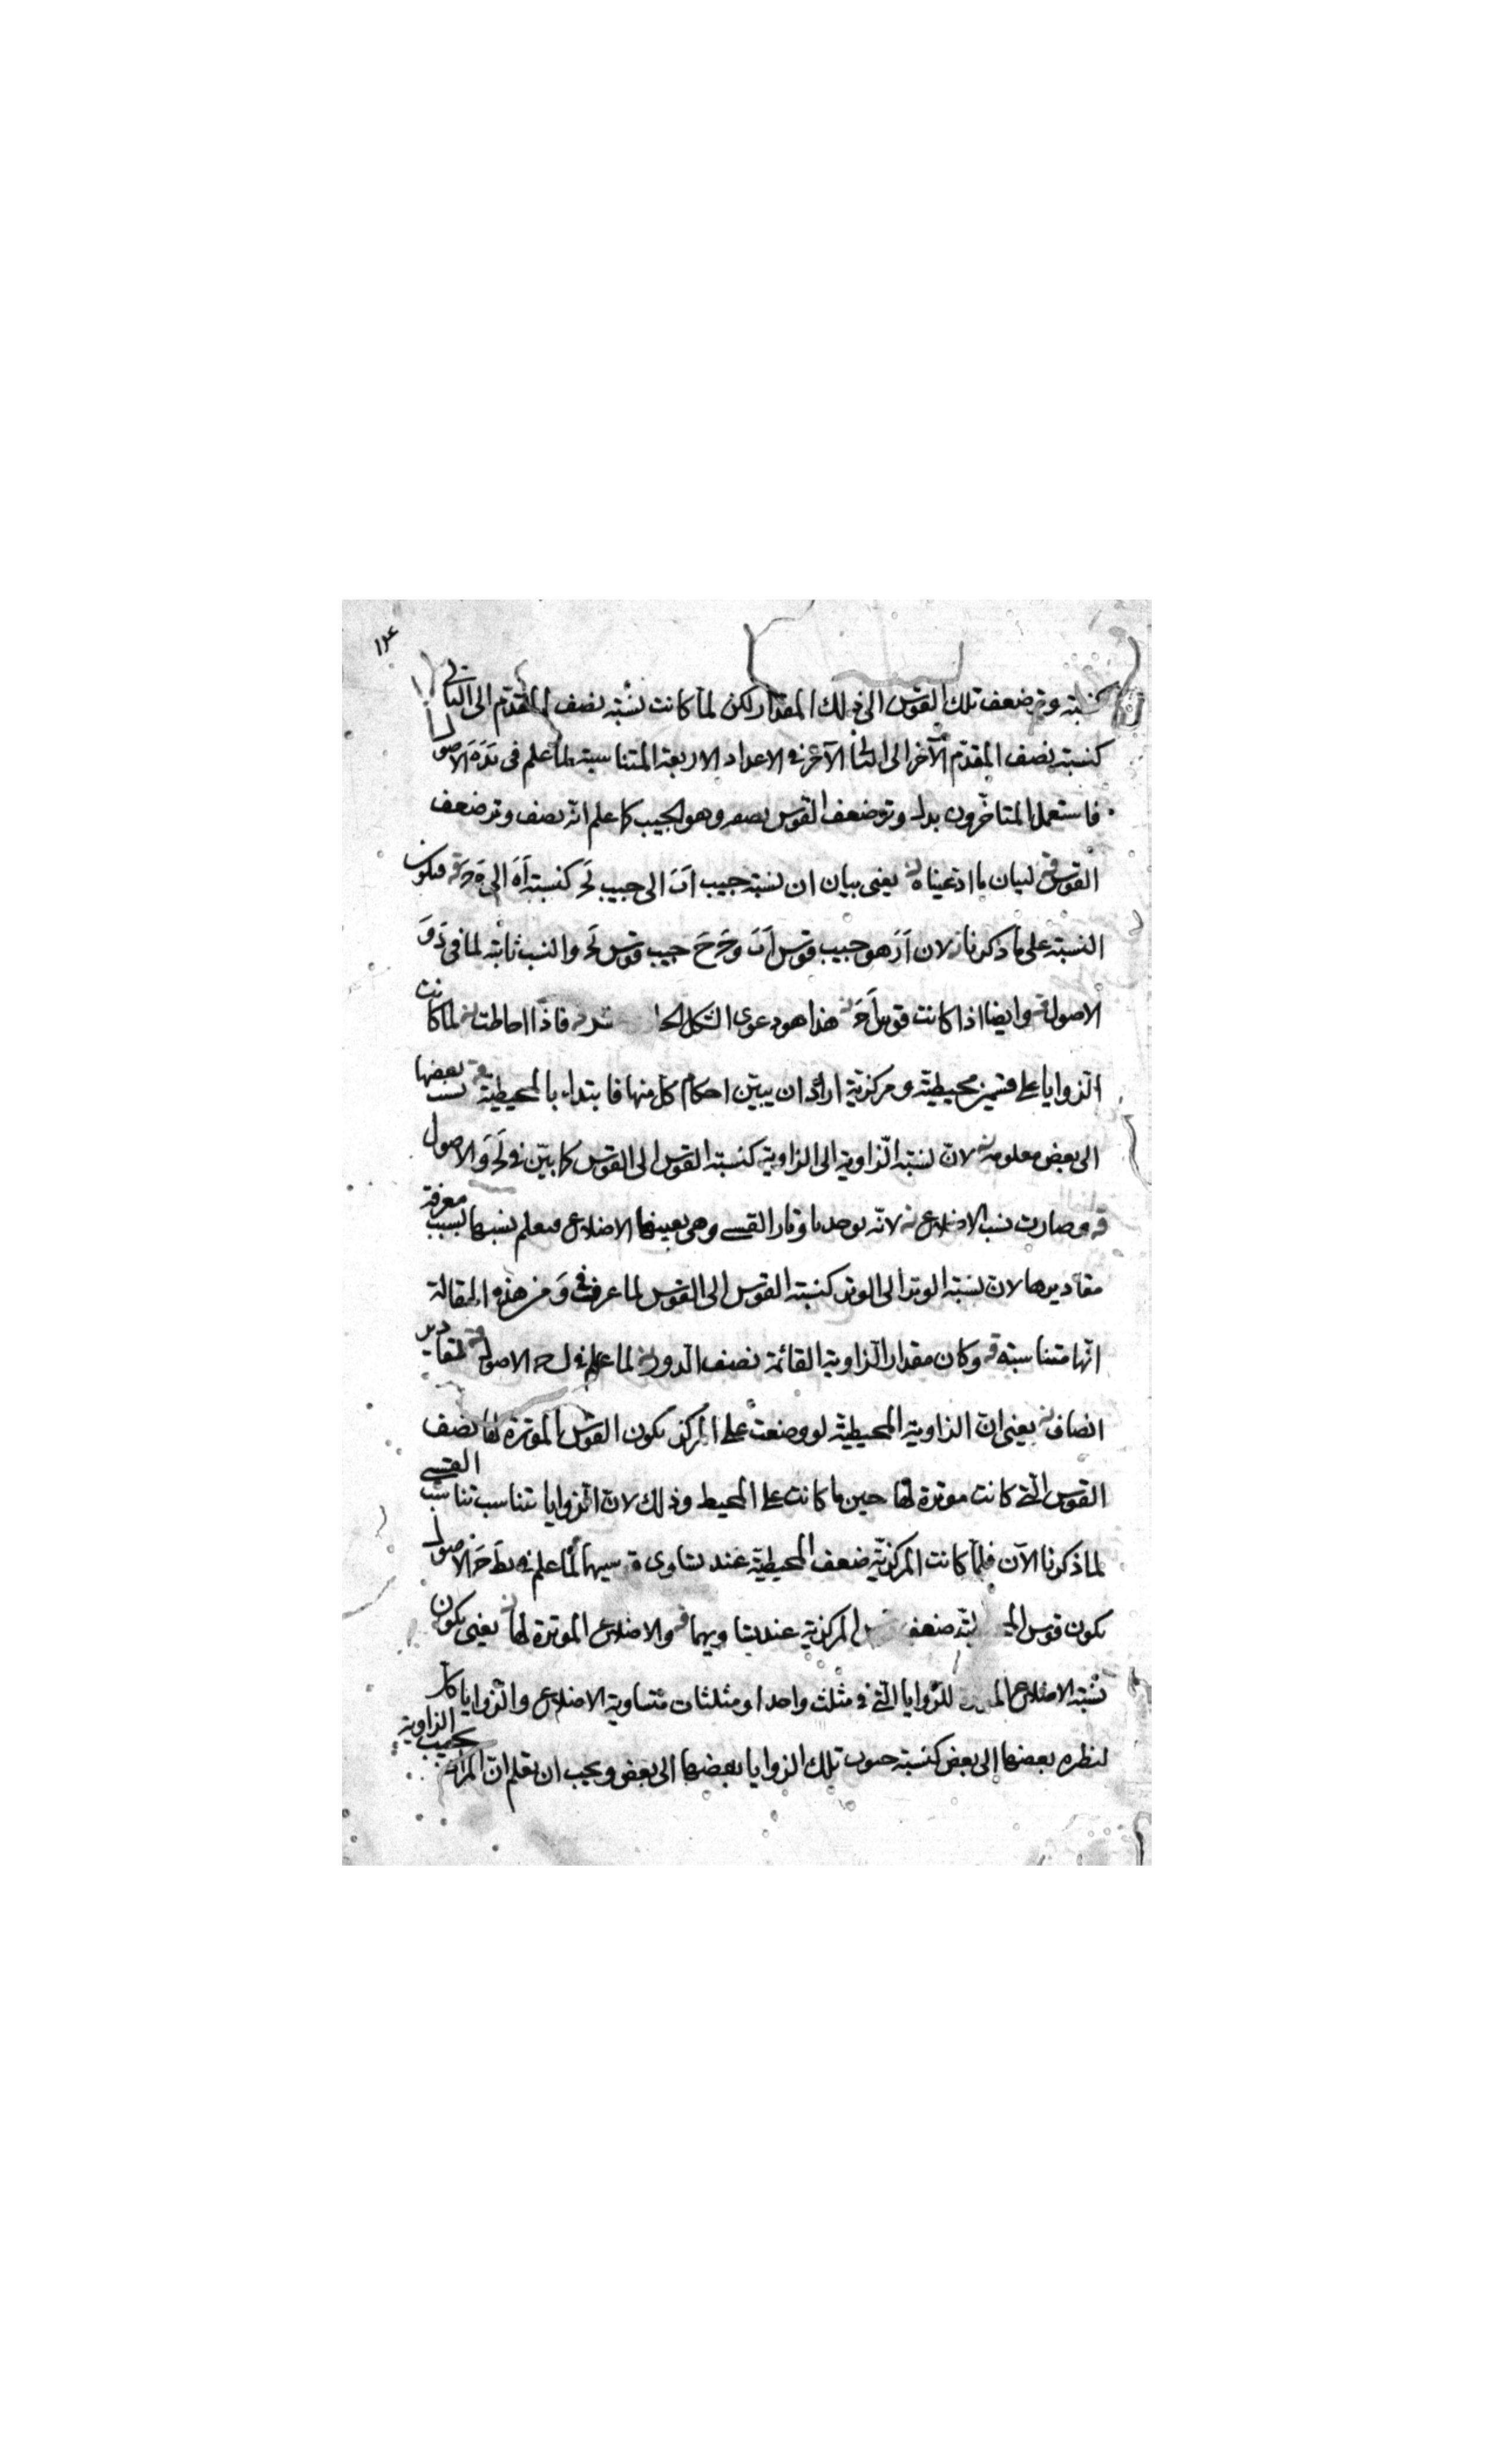 ١٢٤
كنسبته وتر ضعف تلك القوس الى ذلك المقدار لكن لما كانت نسبته نصف المقدم الى التالى
كنسبته نصف المقدّم الآخر الى التالى الآخر فى الاعداد الاربعة المتناسبة لما علم فى الاصول
فاستعمل المتاخّرون بدل وتر ضعف القوس نصفه وهو الجيب كما علم انّه نصف وتر ضعف
القوس قه لبيان ما ادّعيناه نه يعنى بيان ان نسبته جيب اب الى جيب كنسبته اه الى قه فيكون
النسبته على ما ذكرنا نه لان از هو جيب قوس اب و جح جيب قوس والنسب ثابته لما فى
الاصول قه وايضا اذا كانت قوس اح نه هذا هو دعوى الشكل قه فاذا احاطت نه لما كانت
الزوايا على قسمين محيطيّة ومركزية اراد ان يبيّن احكام كل منها فابتداء بالمحيطيّة قه نسب بعضها
الى بعض معلومه نه لانّ نسبته الزاوية الى الزاوية كنسبته القوس الى القوس كما بيّن فى والاصول
قه وصارت نسب الاضلاع نه لانّه يوجد اوتار القسى وهى بعينها الاضلاع فيعلم نسبها بسبب معرفة
مقاديرها لان نسبته الوتر الى الوتر كنسبته القوس الى القوس لما عرفت فى و من هذه المقالة
انّها متناسبته قه وكان مقدار الزاوية القائمة نصف الدور نه لما علم فى الاصول قه لمقادير
انصاف نه يعنى انّ الزاوية المحيطيّة لو وضعت على المركز يكون القوس الموترة لها نصف
القوس التى كانت موترة لها حين ما كانت على المحيط وذلك لان الزوايا تتناسب تناسب القسى
لما ذكرنا الآن فلمّا كانت المركزيّة ضعف المحيطيّة عند تساوى قوسيهما لما علم فى الاصول
يكون قوس ضعف المركزية عند تساويهما قه والاضلاع الموترة لها نه يعنى يكون
نسبته الاضلاع للزوايا التى فى مثلث واحد او مثلثات متساوية الاضلاع والزوايا كل
لنظيره بعضها الى بعض كنسبته جيوب تلك الزوايا بعضها الى بعض ويجب ان يعلم انّ المراد بجيب الزاوية